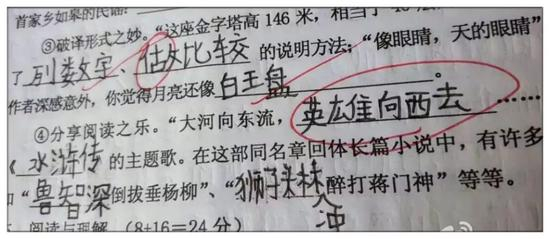 首家乡如皋的民谣
③破译形式之妙。“这座金字塔高 146 米，相当于
了列数字、比较的说明方法；“像眼睛，天的眼睛”
作者深感意外，你觉得月亮还像白王盘。
④分享阅读之乐。“大河向东流，英雄向西去……
《水浒传的主题歌。在这部同名章回体长篇小说中，有许多
“鲁智深倒拔垂杨柳”、“狮子头林冲醉打蒋门神”等等。
阅读与理解（8+16=24 分）